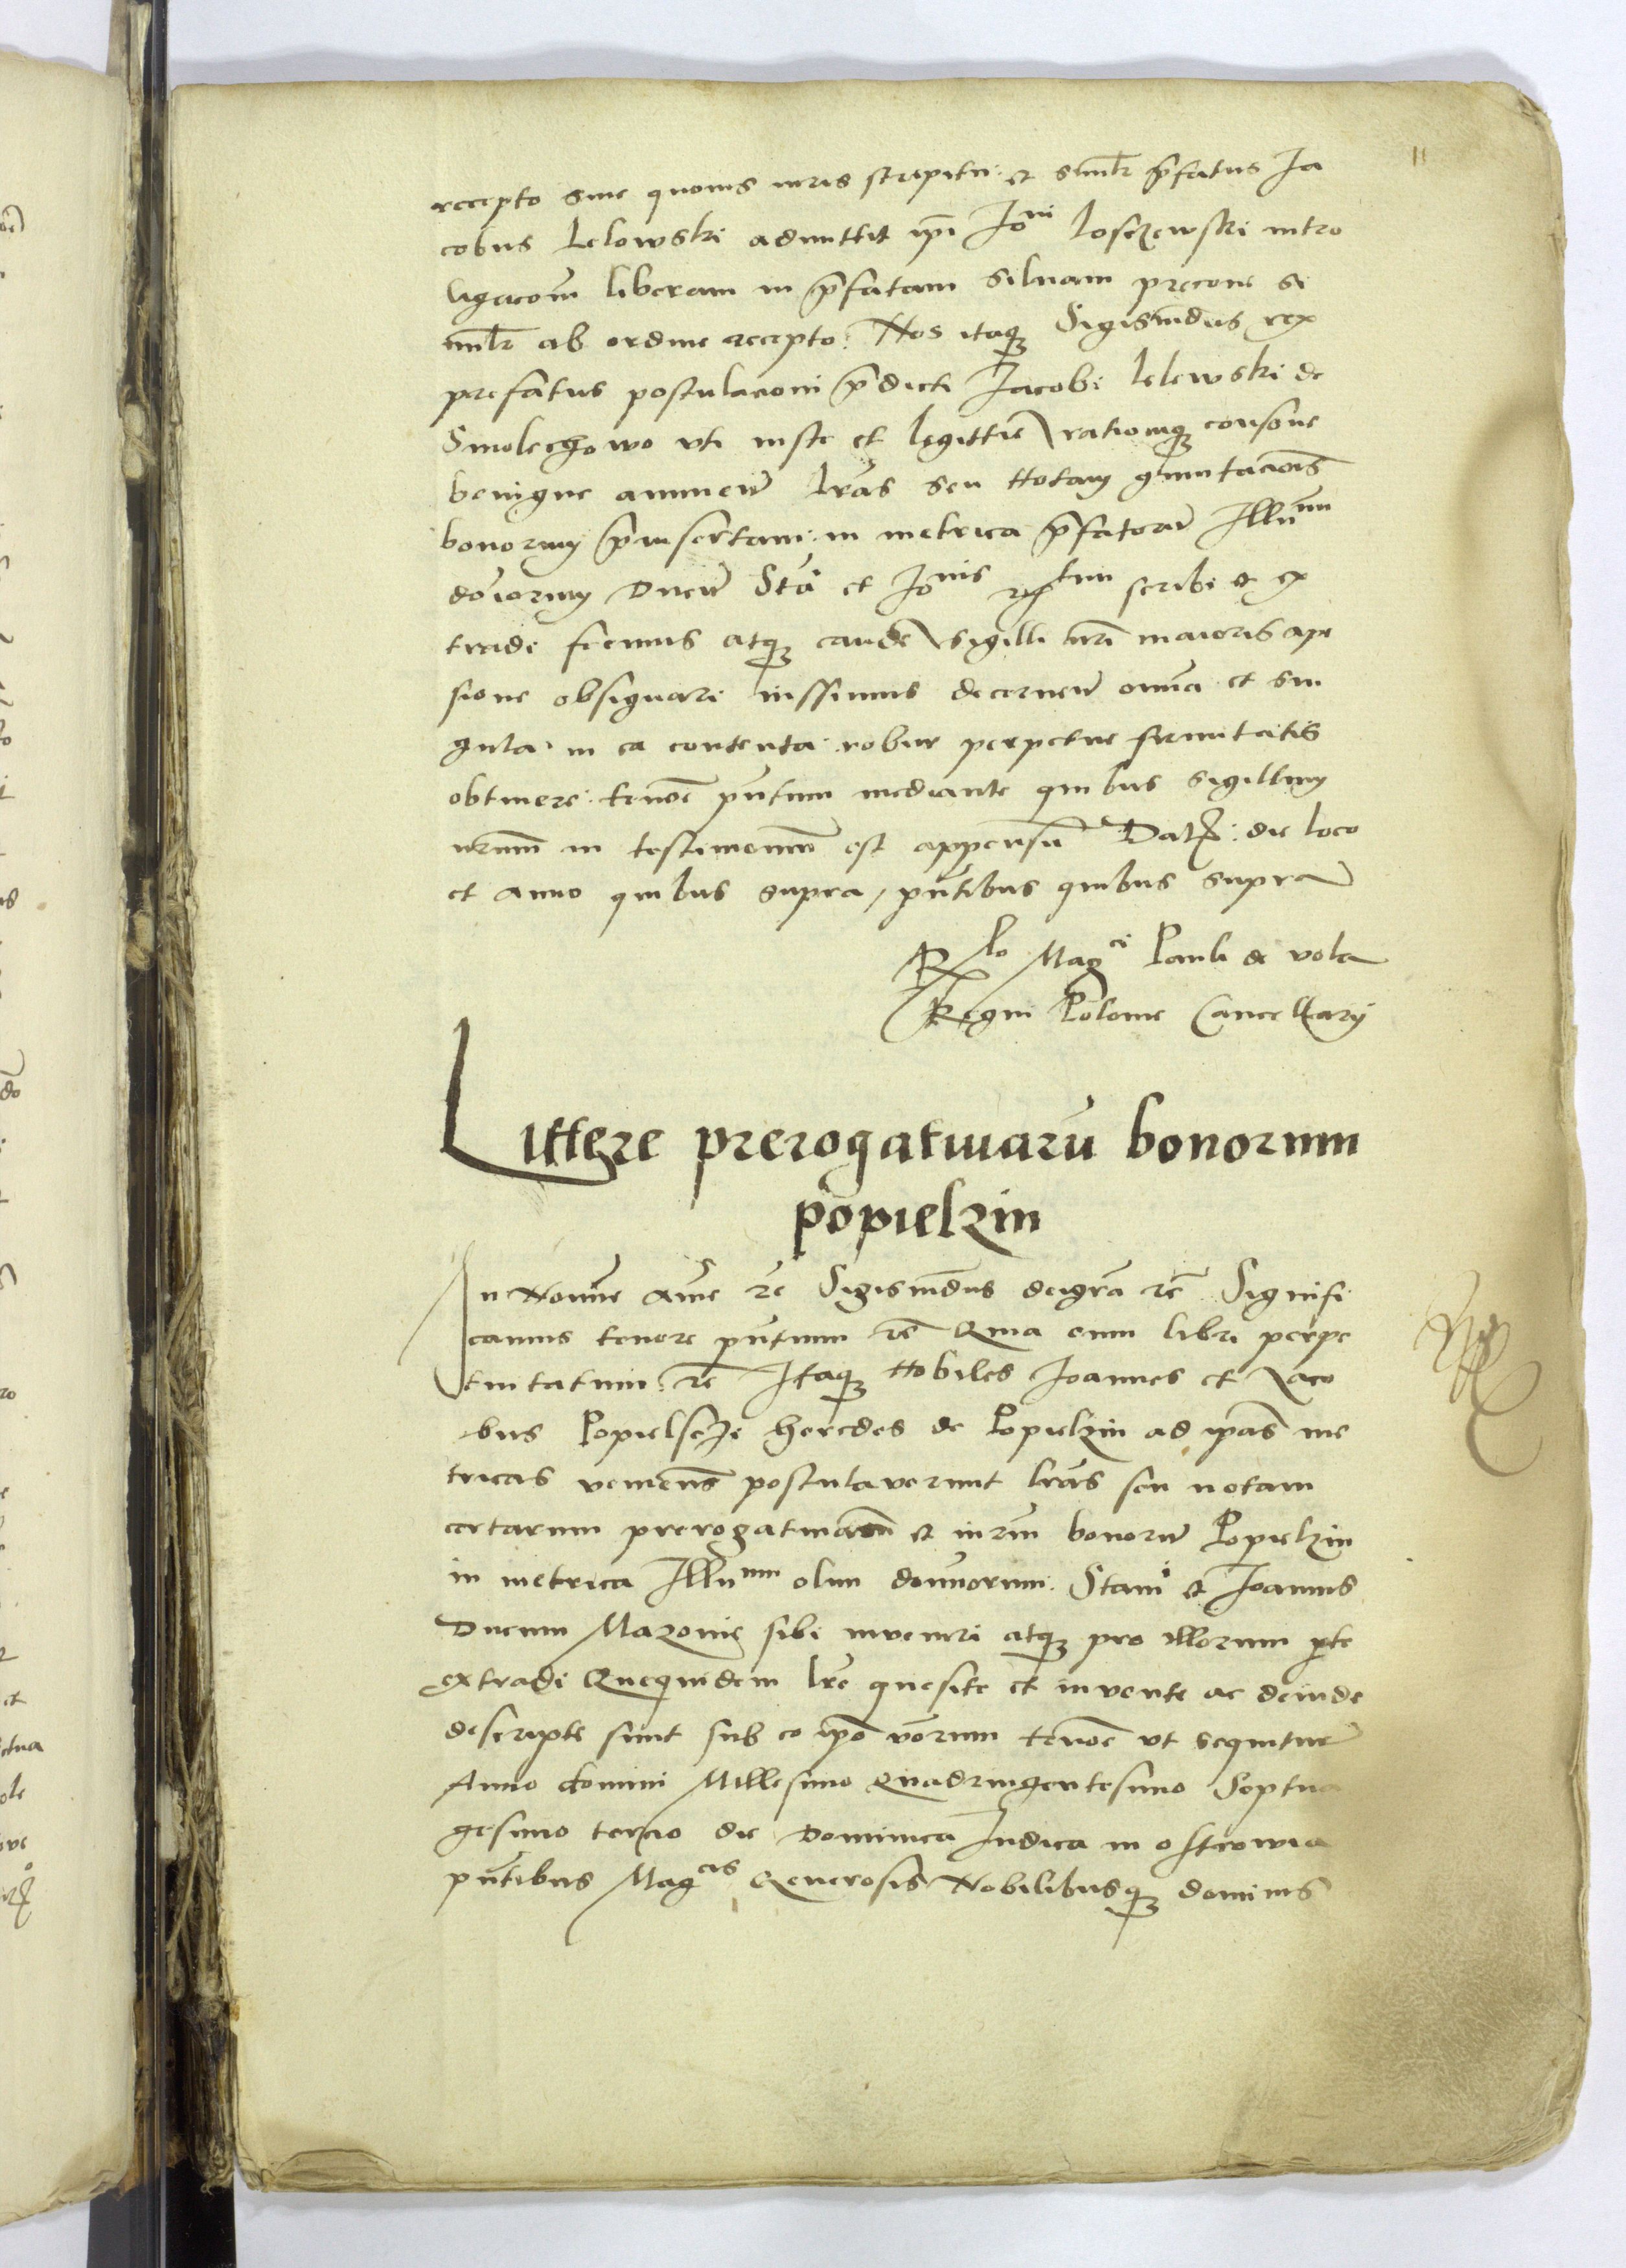 11
recepto sine quovis iuris strepitu. et simlr p̄fatus Ja
cobus Lelowski admittit ipī Joni Losczewski intro
ligacoīm liberam in p̄fatam silvam precone si
milr ab ordine recepto. Nos itaqz Sigismūdus rex
prefatus postulacioni p̄dicti Jacobi Lelewski de
Smolechowo uti iuste et legittie rationiqz consone
benigne annuen̄ lrās seu Notam cōmutaciois̄
bonorum p̄insertam. in metrica p̄fatorū Illmm
doīorum Ducū Sta et Jonis scribi et ex
tradi fecimus atqz eandē sigilli nrī maioris apē
sione obsignari iussimus decernen̄ omīa et sin
gula in ea contenta robur perpetue firmitatis
obtinere. tenoē pn̄tium mediante quibus sigillum
nrum̄ in testimoniū est appensū Datz. die loco
et anno quibus supra, pn̄tibus quibus supra
Rlo Magci Pauli de vola
Regni Polonie Cancellarÿ
Littere prerogativarū bonorum
popielzin
In Noīme Amē rē Sigismūdus deigrā rē Signifi
camus tenore pn̄tium rē Quia cum libri perpe
tuitatum. rē Itaqz Nobiles Joannes et Jaco
bus Popielsczi heredes de Popielzin ad ipas̄ me
tricas veniens̄ postulaverunt lrās seu notam
certarum prerogativarum et iurīu bonorū Popielzin
in metrica Illmm olim dominorum. Stani et Joannis
Ducum Mazovie sibi inveniri atqz pro illorum pte
extradi Quequidem lrē quesite et invente ac deinde
descripte sunt sub eo ipō vōrum tenoē ut sequitur
Anno domini Millesimo Quadringentesimo Septua
gesimo tercio die Dominica Judica in ostrowia
pn̄tibus Magcis Generosis Nobilibusqz dominis